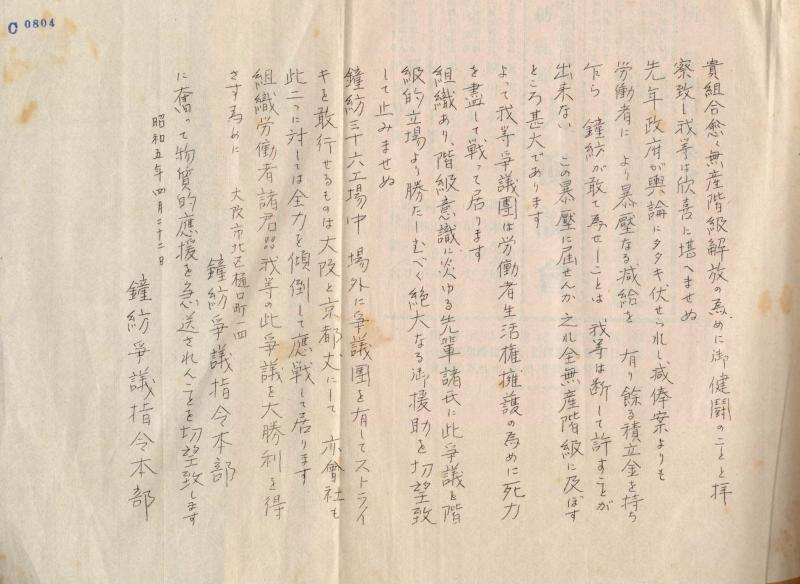 C 0804
貴組合愈々無産階級解放の為めに御健闘のことと拝
察致し我等は欣喜に堪へませぬ
先年政府が輿論にタタキ伏せられし减俸案よりも
労働者に より暴壓なる减給を 有り餘る積立金を持ち
乍ら 鐘紡が敢て為せしことは 我等は断じて許すことが
出来ない この暴壓に屈せんか 之れ全無産階級に及ぼす
ところ甚大であります
よって我等爭議團は労働者生活権擁護の為めに死力
を盡して戦って居ります
組織あり、階級意識に炎ゆる先輩諸氏に此爭議を階
級的立場より勝たしむべく絶大なる御援助を切望致
して止みませぬ
鐘紡三十六工場中 場外に爭議團を有してストライ
キを敢行せるものは大阪と京都丈にして 亦會社も
此二つに対しては全力を傾倒して應戦して居ります
組織労働者諸君!! 我等の此爭議を大勝利を得
さす為めに 大阪市北区樋口町一四
鐘紡爭議指令本部
に奮って物質的應援を急送されんことを切望致します
昭和五年四月二十二日
鐘紡爭議指令本部